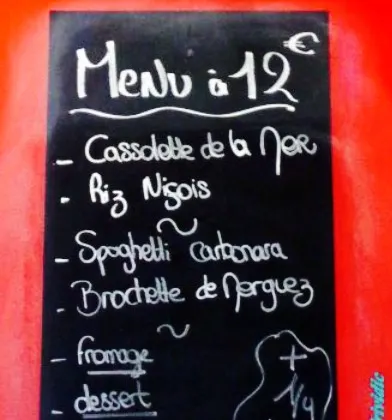 Menu à 12 €
- Cassolette de la Mer
- Riz Niçois
~
- Spaghetti carbonara
- Brochette de Merguez
~
- fromage
- dessert
+
1/4